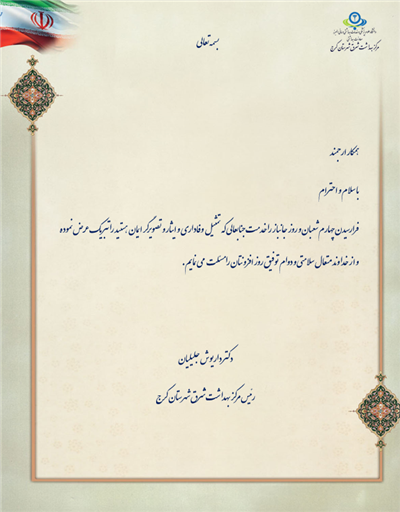 مرکز بهداشت شرق شهرستان کرج
بسمه تعالی
همکار ارجمند
با سلام و احترام
فرارسیدن چهارم شعبان و روز جانباز را خدمت جنابعالی که تمثیل وفاداری و ایثار و تصویرگر ایمان هستید را تبریک عرض نموده
و از خداوند متعال سلامتی و دوام توفیق روز افزونتان را مسئلت می نمایم.
دکتر داریوش جلیلیان
رئیس مرکز بهداشت شرق شهرستان کرج